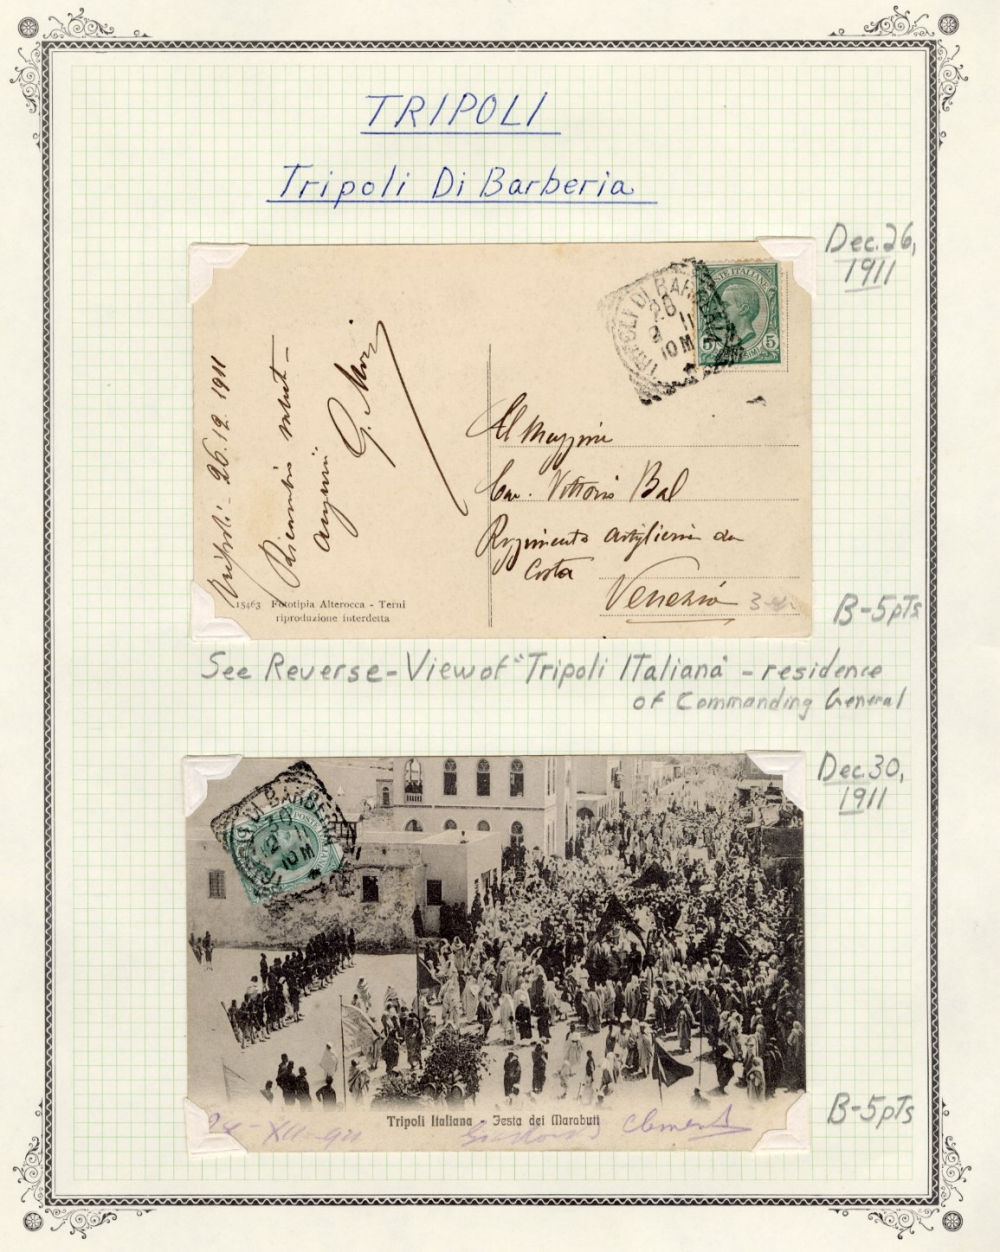 TRIPOLI
Tripoli Di Barberia
Dec. 26,
1911
TRIPOLI DI BARBERIA
11
10 M
POSTE ITALIANE
5 5
Tripoli - 26.12.1911
Ricambio saluti -
auguri
G.
Al Maggiore
Cav. Vittorio Bal
Reggimento Artiglieria da
Costa
Venezia
15463 Fototipia Alterocca - Terni
riproduzione interdetta
B-5pTs
See Reverse - View of "Tripoli ITaliana" - residence
of Commanding General
Dec. 30,
1911
TRIPOLI DI BARBERIA
30
12 11
10 M
POSTE ITALIANE
Tripoli Italiana - Festa dei Marabuti
B-5pTs